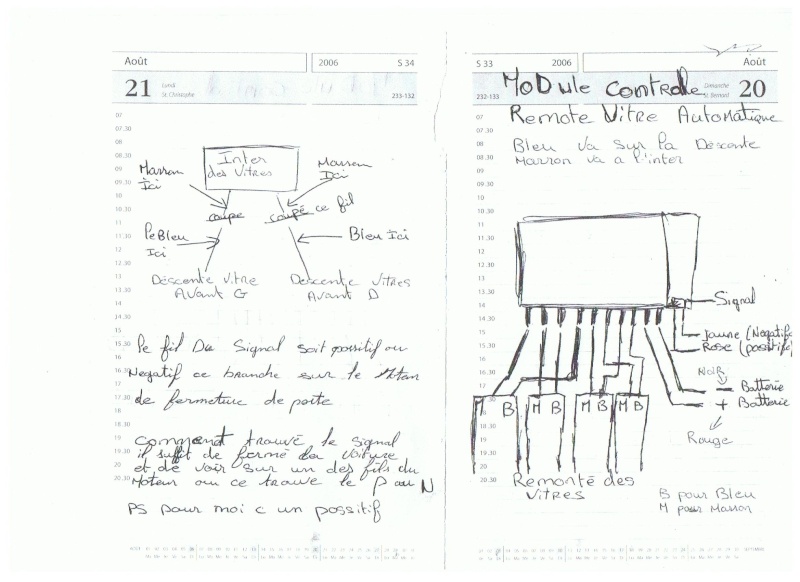 Août 2006 S 34
21 Lundi St. Christophe 233-132
07
07.30
08
08.30
09
09.30
10
10.30
11
11.30
12
12.30
13
13.30
14
14.30
15
15.30
16
16.30
17
17.30
18
18.30
19
19.30
20
20.30
Inter
des Vitres
Marron
Ici
Marron
Ici
coupe
coupé ce fil
le Bleu
Ici
Bleu Ici
Descente vitre
Avant G
Descente vitres
Avant D
le fil Du Signal soit possitif ou
Negatif ce branche sur le
de fermeture de porte
comment trouvé le signal
il suffit de fermé la voiture
et de voir sur un des fils du
Moteur ou ce trouve le P ou N
PS pour moi c un possitif
S 33 2006 Août
232-133 Dimanche St. Bernard 20
MoDule controlle
Remote Vitre Automatique
Bleu va sur la Descente
Marron va a l'inter
07
07.30
08
08.30
09
09.30
10
10.30
11
11.30
12
12.30
13
13.30
14
14.30
15
15.30
16
16.30
17
17.30
18
18.30
19
19.30
20
20.30
Signal
Jaune (Negatif
Rose (possitif)
NOIR
- Batterie
+ Batterie
Rouge
M B M B M B M B
Remonté des
Vitres
B pour Bleu
M pour Marron